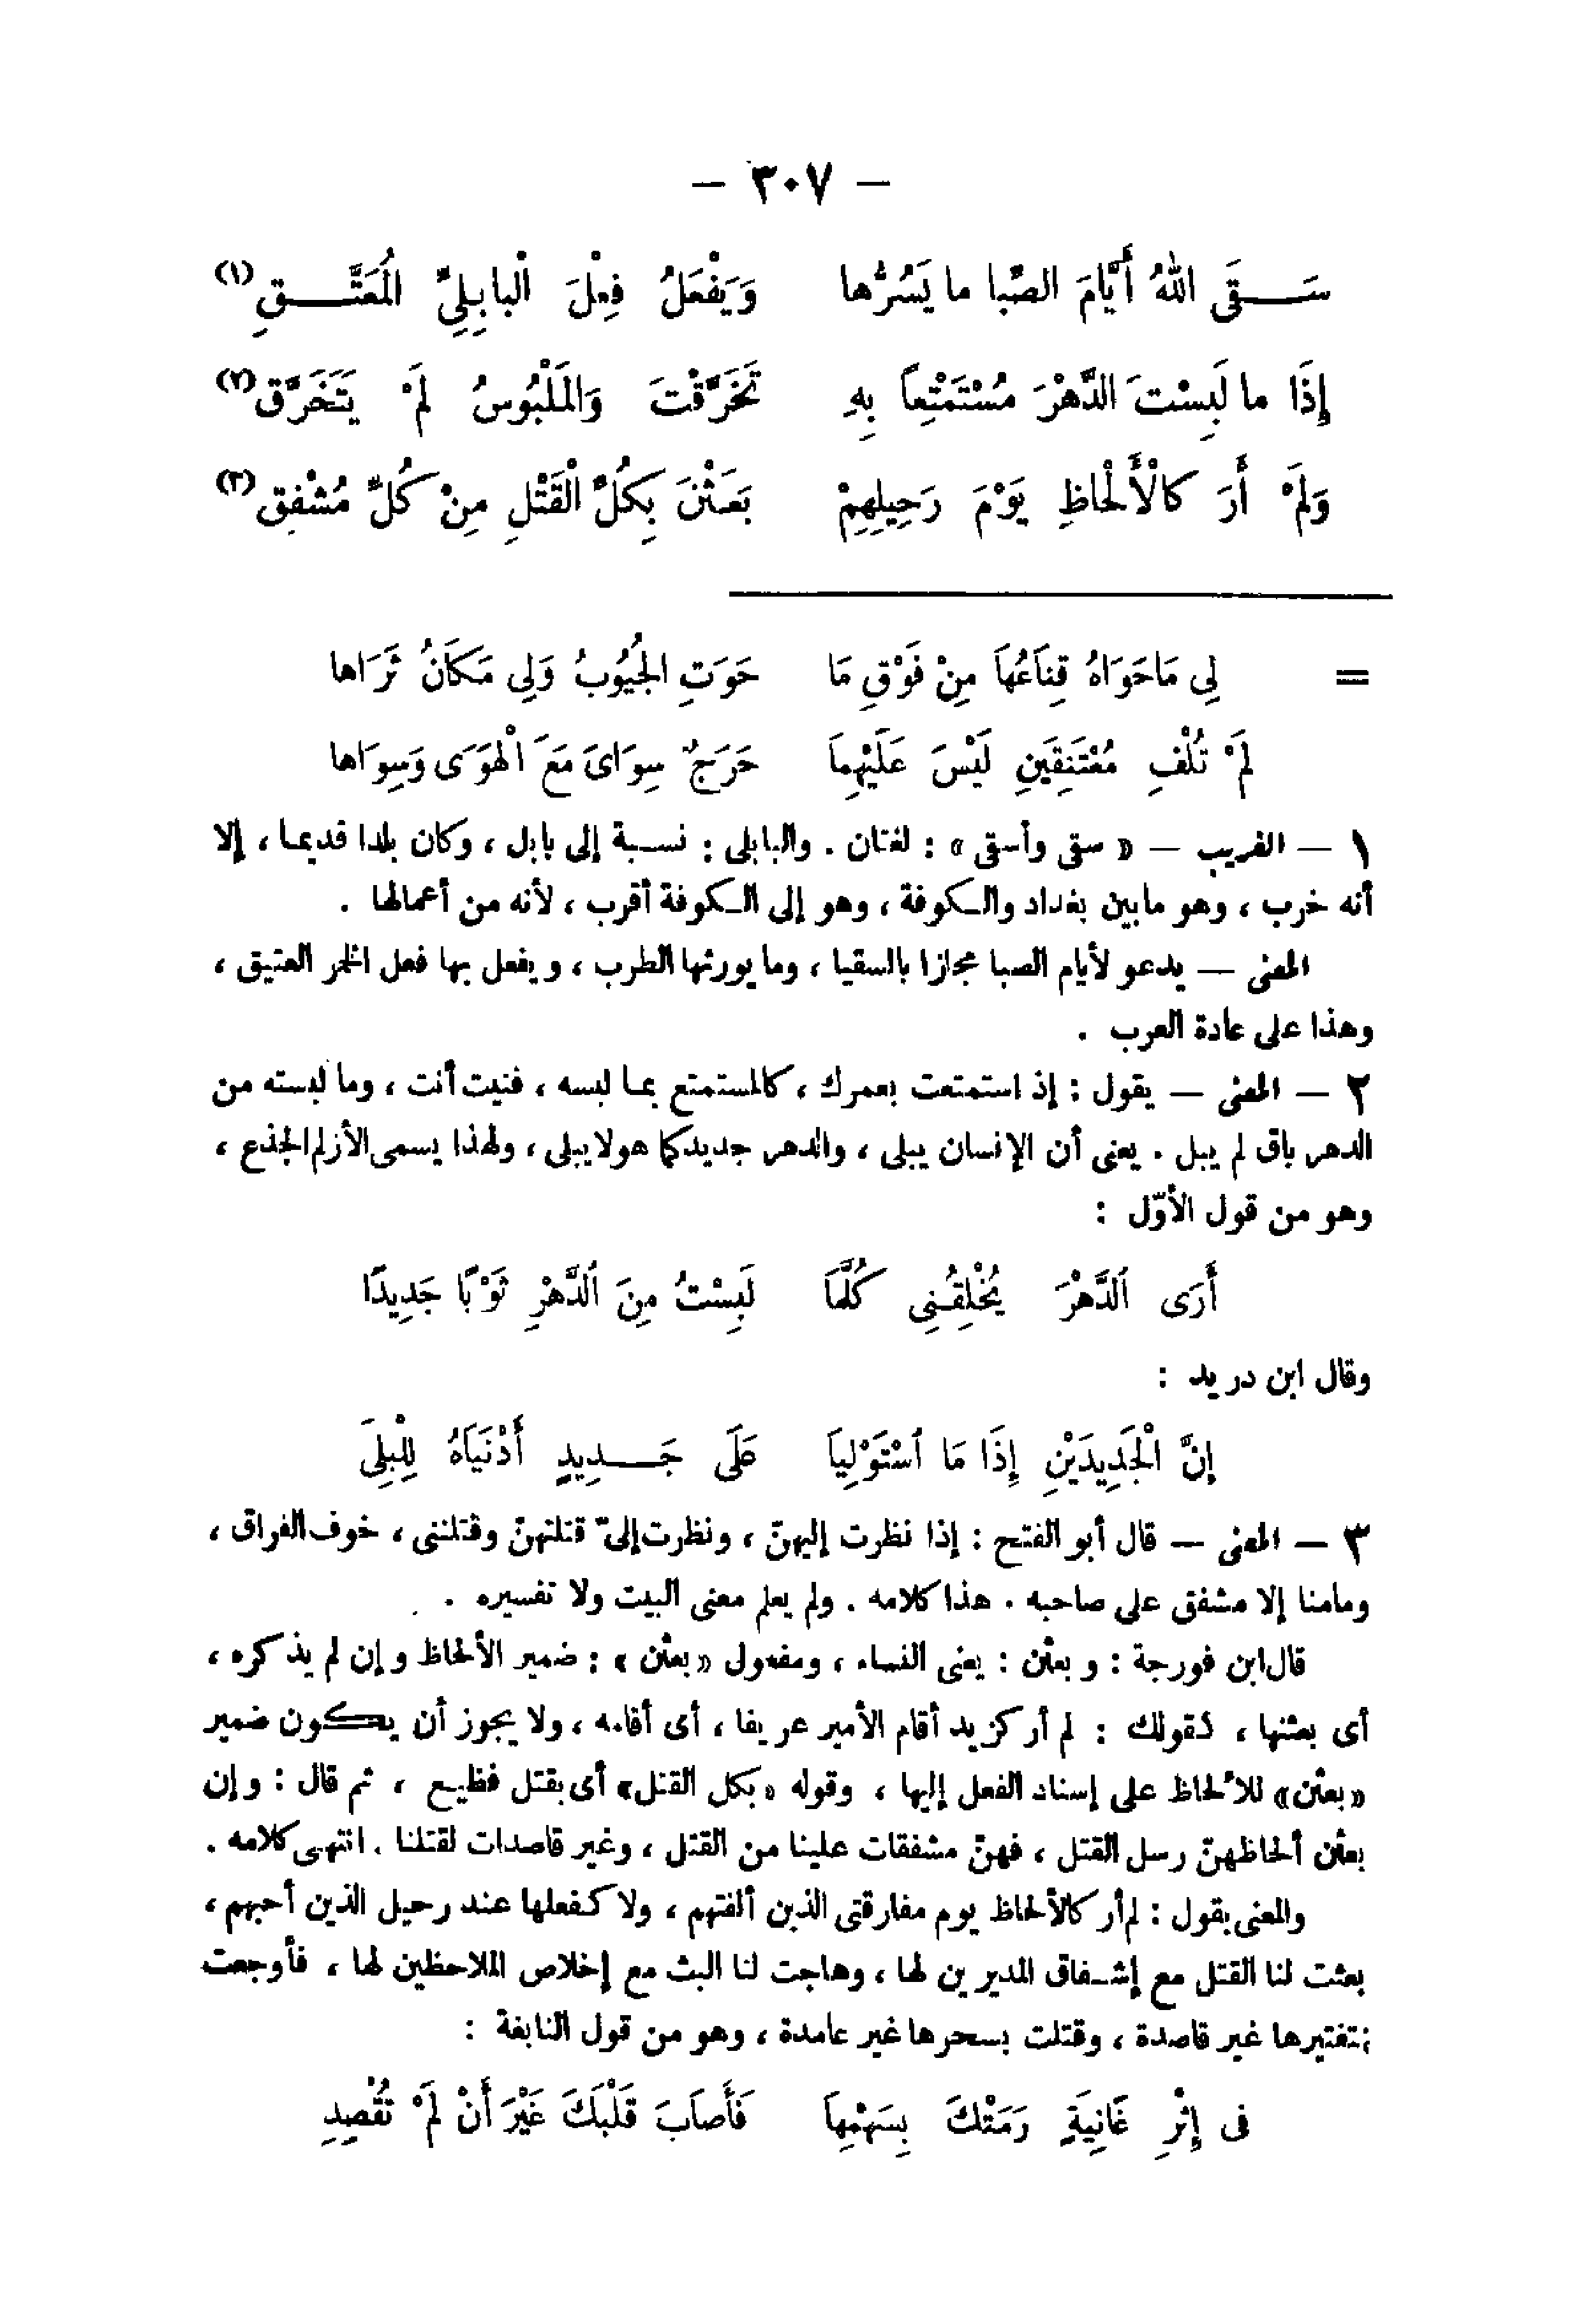 — ٣٠٧ —
سَـــقَى اللهُ أَيَّامَ الصِّبا ما يَسُرُّها وَيَفْعَلُ فِعْلَ الْبابِلِيِّ الْمُعَتَّـــقِ (١)
إِذَا ما لَبِسْتَ الدَّهْرَ مُسْتَمْتِعاً بِهِ تَخَرَّقْتَ وَالْمَلْبُوسُ لَمْ يَتَخَرَّقِ (٢)
وَلَمْ أَرَ كالْأَلْحاظِ يَوْمَ رَحِيلِهِمْ بَعَثْنَ بِكُلِّ الْقَتْلِ مِنْ كُلِّ مُشْفِقِ (٣)
= لِى مَاحَوَاهُ قِنَاعُهَا مِنْ فَوْقِ مَا حَوَتِ الْجُيُوبُ وَلِى مَكَانُ ثَرَاها
لَمْ تُلْفِ مُعْتَنِقَيْنِ لَيْسَ عَلَيْهِمَا حَرَجٌ سِوَاىَ مَعَ الْهَوَى وَسِوَاها
١ — الغريب — « سقى وأسقى » : لغتان . والبابلى : نسـبة إلى بابل ، وكان بلدا قديمـا ، إلا
أنه خرب ، وهو مابين بغداد والـكوفة ، وهو إلى الـكوفة أقرب ، لأنه من أعمالها .
المعنى — يدعو لأيام الصبا مجازا بالسقيا ، وما يورثها الطرب ، ويفعل بها فعل الخمر العتيق ،
وهذا على عادة العرب .
٢ — المعنى — يقول : إذ استمتعت بعمرك ، كالمستمتع بمـا لبسه ، فنيت أنت ، وما لبسته من
الدهر باق لم يبل . يعنى أن الإنسان يبلى ، والدهر جديدكما هولايبلى ، ولهذا يسمى الأزلم الجذع ،
وهو من قول الأوّل :
أَرَى ٱلدَّهْرَ يُخْلِقُـنِى كُلَّمَا لَبِسْتُ مِنَ ٱلدَّهْرِ ثَوْبًا جَدِيدًا
وقال ابن دريد :
إِنَّ الْجَدِيدَيْنِ إِذَا مَا ٱسْتَوْلِيَا عَلَى جَـــدِيدٍ أَدْنَيَاهُ لِلْبِلَى
٣ — المعنى — قال أبو الفتح : إذا نظرت إليهنّ ، ونظرت إلىّ قتلتهنّ وقتلننى ، خوف الفراق ،
ومامنا إلا مشفق على صاحبه . هذا كلامه . ولم يعلم معنى البيت ولا تفسيره .
قال ابن فورجة : وبعثن : يعنى النساء ، ومفعول « بعثن » : ضمير الألحاظ وإن لم يذكره ،
أى بعثنها ، كقولك : لم أر كزيد أقام الأمير عريفا ، أى أقامه ، ولا يجوز أن يـكون ضمير
« بعثن » للألحاظ على إسناد الفعل إليها ، وقوله « بكل القتل » أى بقتل فظيـع ، ثم قال : وإن
بعثن ألحاظهنّ رسل القتل ، فهنّ مشفقات علينا من القتل ، وغير قاصدات لقتلنا . انتهـى كلامه .
والمعنى يقول : لم أر كالألحاظ يوم مفارقتى الذين ألفتهم ، ولا كـفعلها عند رحيل الذين أحبهم ،
بعثت لنا القتل مع إشـفاق المديرين لها ، وهاجت لنا البث مع إخلاص الملاحظين لها ، فأوجعت
بتفتيرها غير قاصدة ، وقتلت بسحرها غير عامدة ، وهو من قول النابغة :
فى إِثْرِ غَانِيَةٍ رَمَتْكَ بِسَهْمِهَا فَأَصَابَ قَلْبَكَ غَيْرَ أَنْ لَمْ تُقْصِدِ